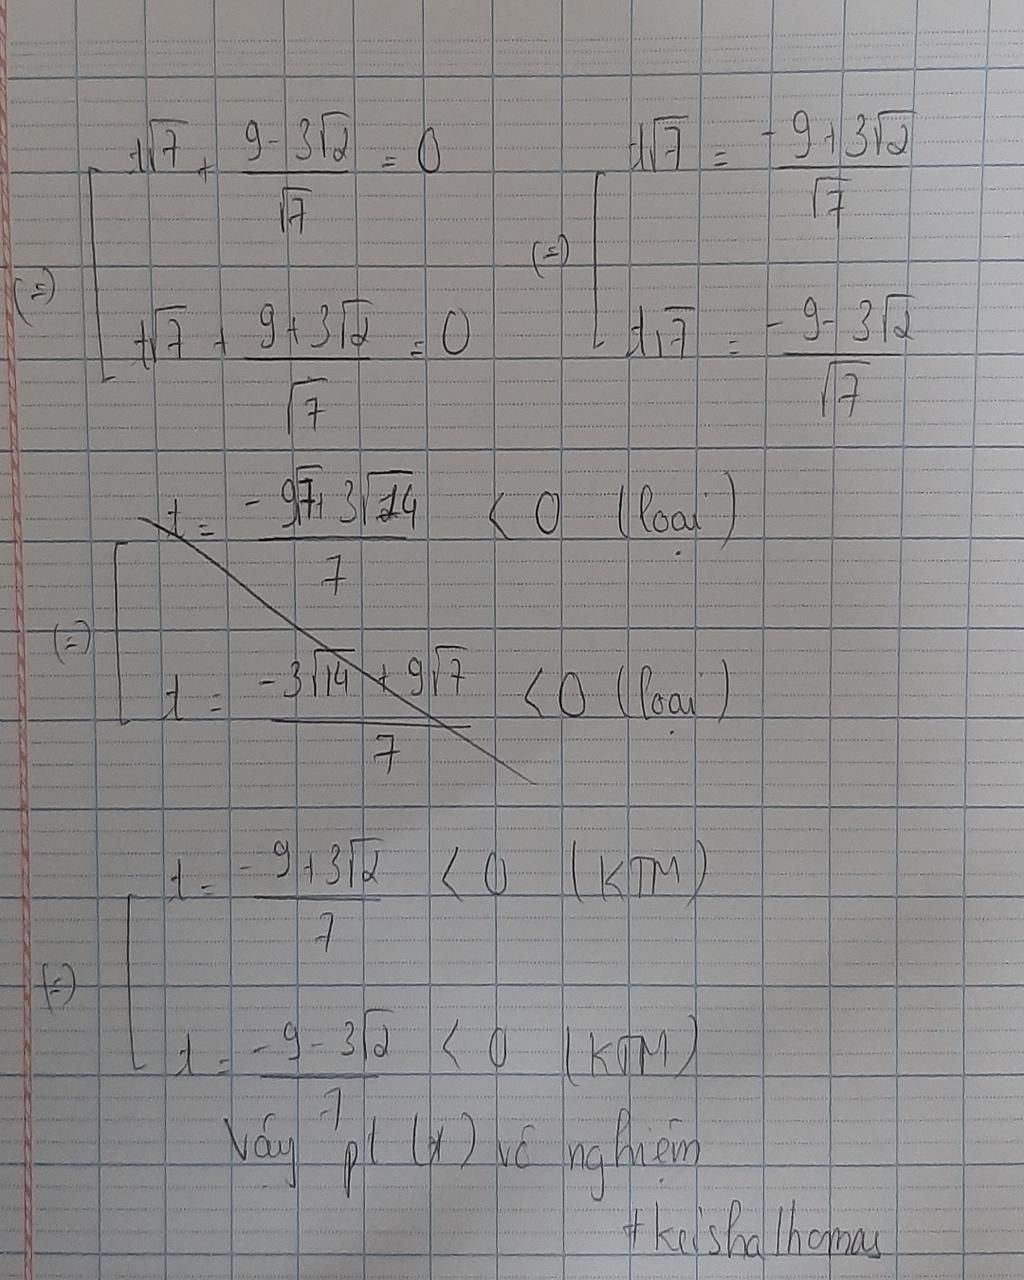 (=) [ t√7 + (9 - 3√2)/√7 = 0 (=) [ t√7 = (-9 + 3√2)/√7
t√7 + (9 + 3√2)/√7 = 0 t√7 = (-9 - 3√2)/√7
(=) [ t = (-9√7 + 3√14)/7 < 0 (loại)
t = (-3√14 + 9√7)/7 < 0 (loại)
(=) [ t = (-9 + 3√2)/7 < 0 (KTM)
t = (-9 - 3√2)/7 < 0 (KTM)
Vậy pt (*) vô nghiệm
#keishathomas